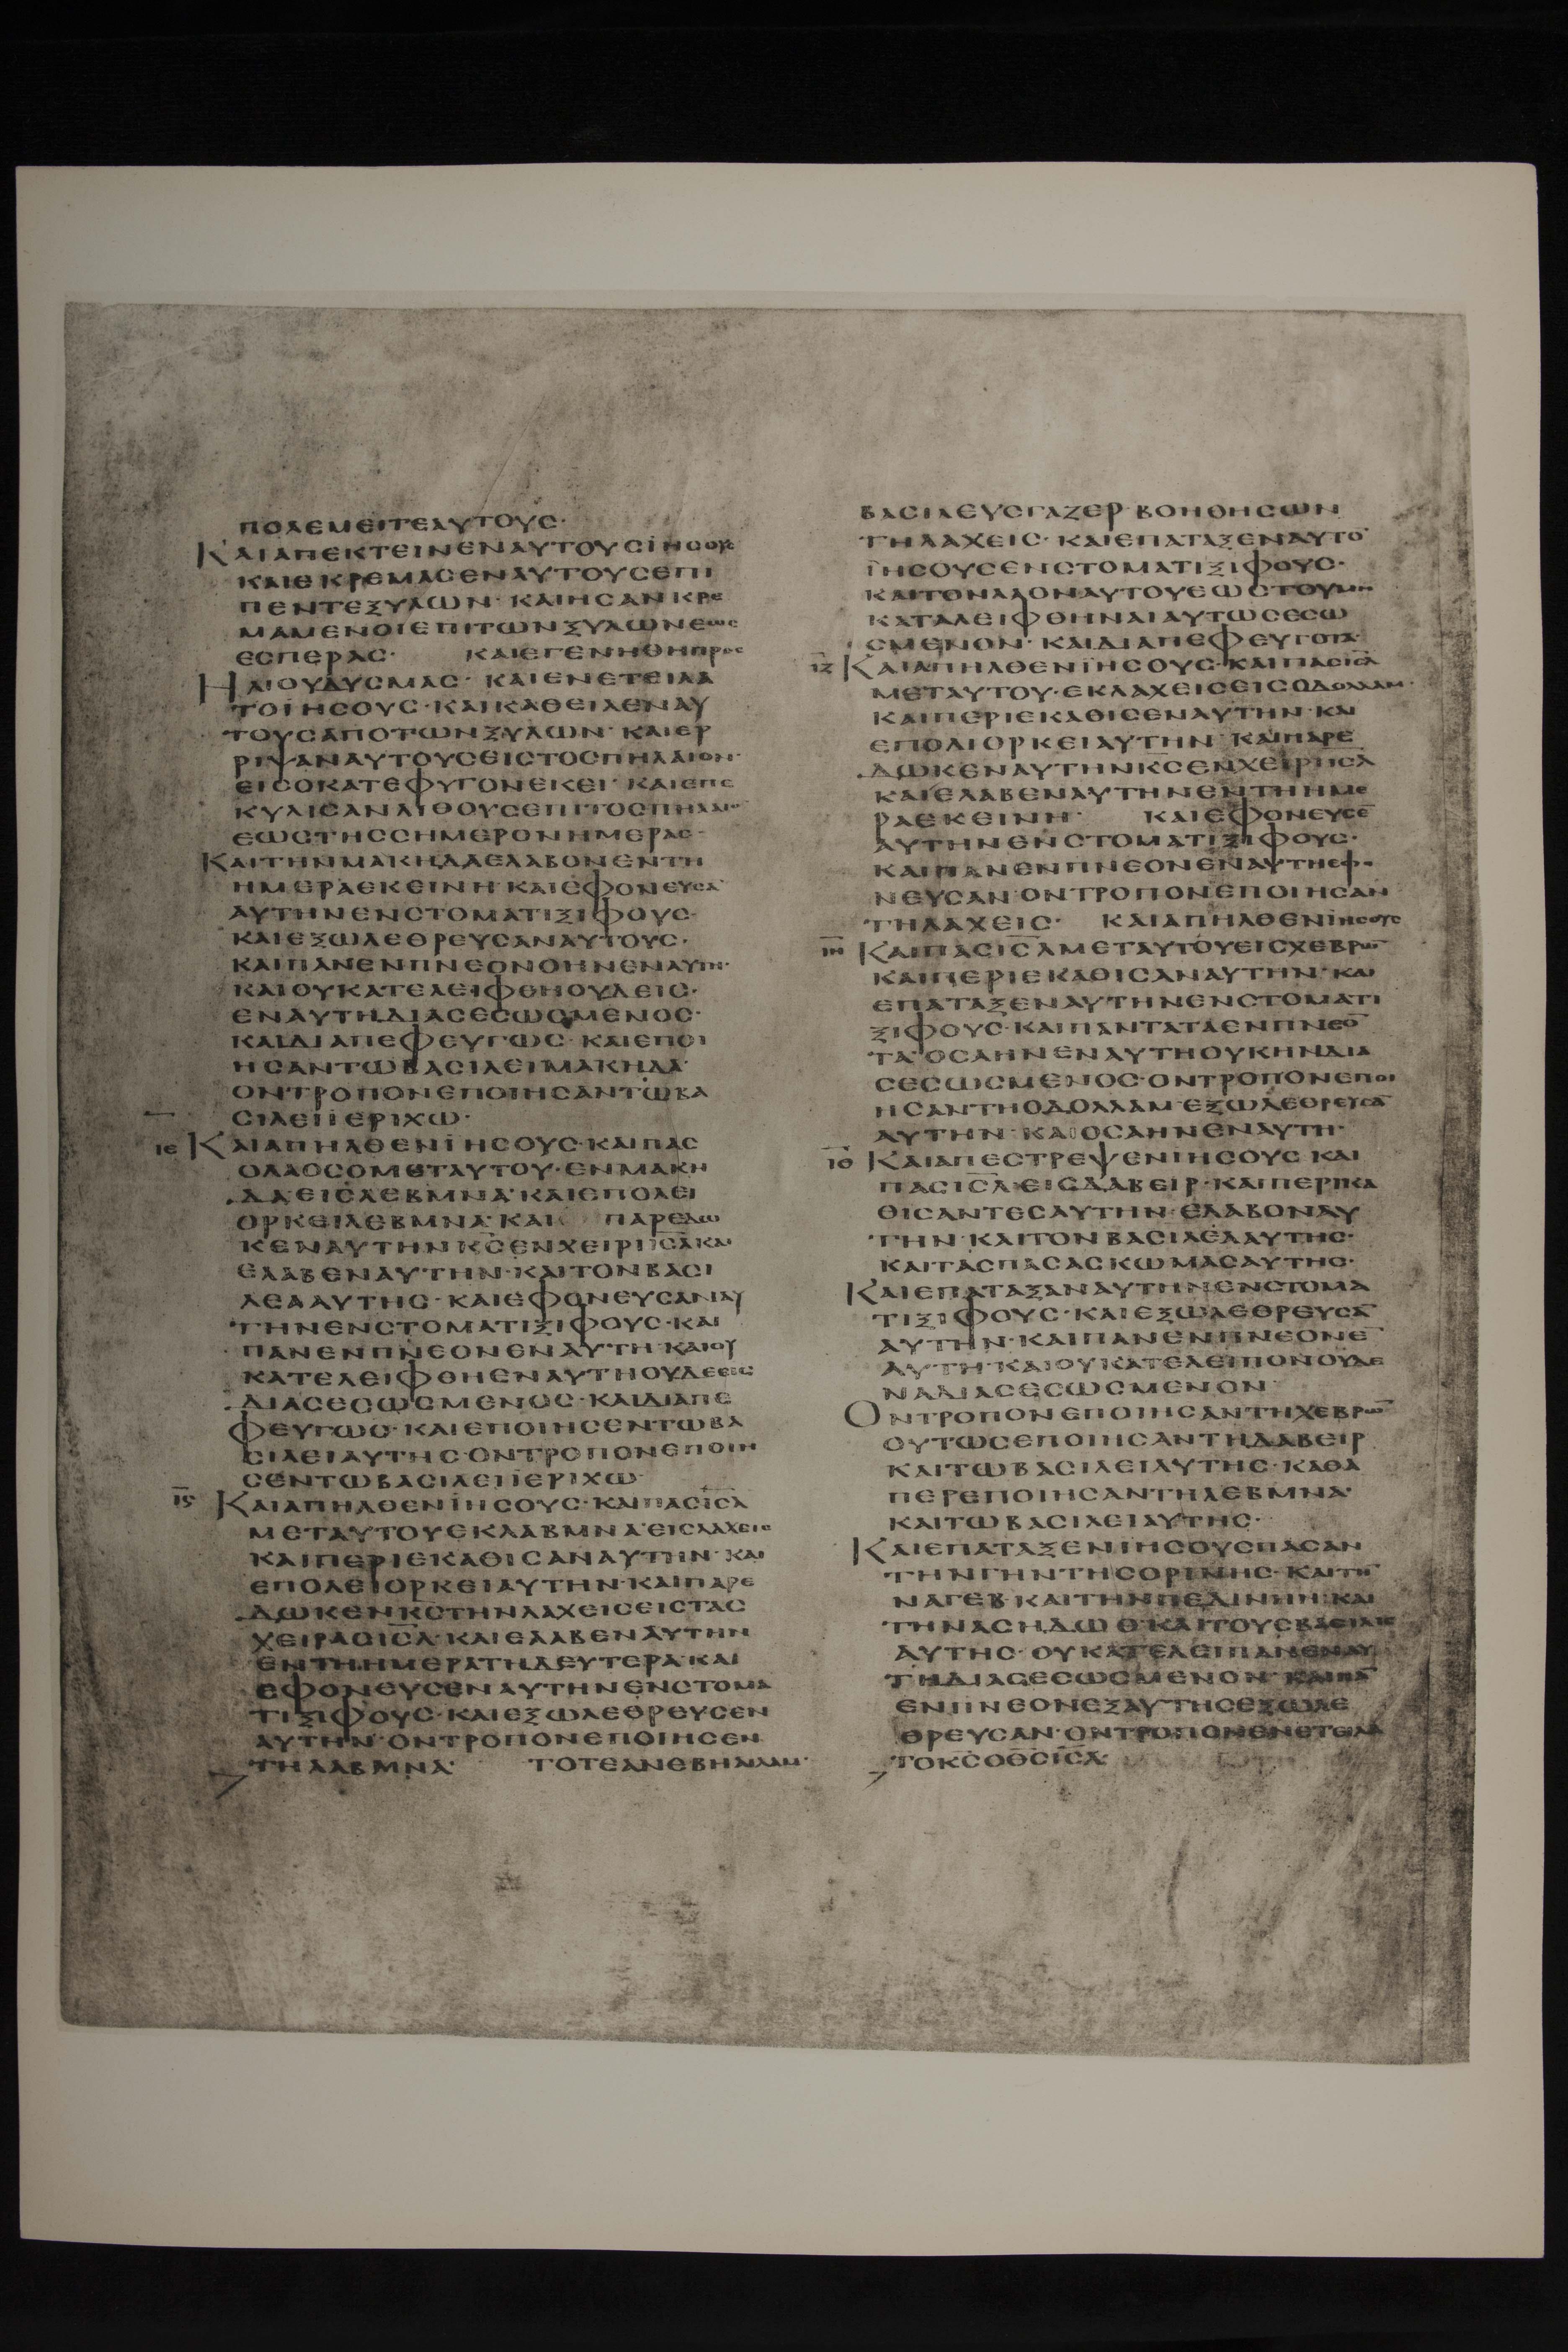 ΠΟΛΕΜΕΙΤΕΑΥΤΟΥС·
ΚΑΙΑΠΕΚΤΕΙΝΕΝΑΥΤΟΥСΪΗСΟΥС
ΚΑΙΕΚΡΕΜΑСΕΝΑΥΤΟΥСΕΠΙ
ΠΕΝΤΕΞΥΛΩΝ· ΚΑΙΗСΑΝΚΡΕ
ΜΑΜΕΝΟΙΕΠΙΤΩΝΞΥΛΩΝΕΩС
ΕСΠΕΡΑС· ΚΑΙΕΓΕΝΗΘΗΠΡΟС
ΗΛΙΟΥΔΥСΜΑС· ΚΑΙΕΝΕΤΕΙΛΑ
ΤΟΪΗСΟΥС·ΚΑΙΚΑΘΕΙΛΕΝΑΥ
ΤΟΥСΑΠΟΤΩΝΞΥΛΩΝ· ΚΑΙΕΡ
ΡΙΨΑΝΑΥΤΟΥСΕΙСΤΟСΠΗΛΑΙΟΝ·
ΕΙСΟΚΑΤΕΦΥΓΟΝΕΚΕΙ· ΚΑΙΕΠΕ
ΚΥΛΙСΑΝΛΙΘΟΥСΕΠΙΤΟСΠΗΛΑΙΟ
ΕΩСΤΗССΗΜΕΡΟΝΗΜΕΡΑС·
ΚΑΙΤΗΝΜΑΚΗΔΑΕΛΑΒΟΝΕΝΤΗ
ΗΜΕΡΑΕΚΕΙΝΗ·ΚΑΙΕΦΟΝΕΥСΑ̅
ΑΥΤΗΝΕΝСΤΟΜΑΤΙΞΙΦΟΥС·
ΚΑΙΕΞΩΛΕΘΡΕΥСΑΝΑΥΤΟΥС·
ΚΑΙΠΑΝΕΝΠΝΕΟΝΟΗΝΕΝΑΥΤΗ·
ΚΑΙΟΥΚΑΤΕΛΕΙΦΘΗΟΥΔΕΙС·
ΕΝΑΥΤΗΔΙΑСΕСΩСΜΕΝΟС·
ΚΑΙΔΙΑΠΕΦΕΥΓΩС· ΚΑΙΕΠΟΙ
ΗСΑΝΤΩΒΑСΙΛΕΙΜΑΚΗΔΑ·
ΟΝΤΡΟΠΟΝΕΠΟΙΗСΑΝΤΩΒΑ
СΙΛΕΙΪΕΡΙΧΩ·
ΙΕ ΚΑΙΑΠΗΛΘΕΝΪΗСΟΥС·ΚΑΙΠΑС
ΟΛΑΟСΟΜΕΤΑΥΤΟΥ·ΕΝΜΑΚΗ
ΔΑΕΙСΛΕΒΜΝΑ·ΚΑΙΕΠΟΛΕΙ
ΟΡΚΕΙΛΕΒΜΝΑ·ΚΑΙ ΠΑΡΕΔΩ
ΚΕΝΑΥΤΗΝΚ̅С̅ΕΝΧΕΙΡΙΙ̅С̅Λ̅ΚΑΙ
ΕΛΑΒΕΝΑΥΤΗΝ·ΚΑΙΤΟΝΒΑСΙ
ΛΕΑΑΥΤΗС· ΚΑΙΕΦΟΝΕΥСΑΝΑΥ
ΤΗΝΕΝСΤΟΜΑΤΙΞΙΦΟΥС·ΚΑΙ
ΠΑΝΕΝΠΝΕΟΝΕΝΑΥΤΗ·ΚΑΙΟΥ
ΚΑΤΕΛΕΙΦΘΗΕΝΑΥΤΗΟΥΔΕΕΙС
ΔΙΑСΕСΩСΜΕΝΟС·ΚΑΙΔΙΑΠΕ
ΦΕΥΓΩС·ΚΑΙΕΠΟΙΗСΕΝΤΩΒΑ
СΙΛΕΙΑΥΤΗС·ΟΝΤΡΟΠΟΝΕΠΟΙΗ
СΕΝΤΩΒΑСΙΛΕΙΪΕΡΙΧΩ·
Ι̅Ϛ̅ ΚΑΙΑΠΗΛΘΕΝΪΗСΟΥС·ΚΑΙΠΑСΙ̅С̅Λ̅
ΜΕΤΑΥΤΟΥΕΚΛΑΒΜΝΑ·ΕΙСΛΑΧΕΙС
ΚΑΙΠΕΡΙΕΚΑΘΙСΑΝΑΥΤΗΝ·ΚΑΙ
ΕΠΟΛΕΙΟΡΚΕΙΑΥΤΗΝ·ΚΑΙΠΑΡΕ
ΔΩΚΕΝΚ̅С̅ΤΗΝΛΑΧΕΙСΕΙСΤΑС
ΧΕΙΡΑСΙ̅С̅Λ̅·ΚΑΙΕΛΑΒΕΝΑΥΤΗΝ
ΕΝΤΗΗΜΕΡΑΤΗΔΕΥΤΕΡΑ·ΚΑΙ
ΕΦΟΝΕΥСΕΝΑΥΤΗΝΕΝСΤΟΜΑ
ΤΙΞΙΦΟΥС·ΚΑΙΕΞΩΛΕΘΡΕΥСΕΝ
ΑΥΤΗΝ·ΟΝΤΡΟΠΟΝΕΠΟΙΗСΕΝ
ΤΗΛΑΒΜΝΑ· ΤΟΤΕΑΝΕΒΗΑΙΛΑΜ·
ΒΑСΙΛΕΥСΓΑΖΕΡ·ΒΟΗΘΗСΩΝ
ΤΗΛΑΧΕΙС· ΚΑΙΕΠΑΤΑΞΕΝΑΥΤΟ̅
ΪΗСΟΥСΕΝСΤΟΜΑΤΙΞΙΦΟΥС·
ΚΑΙΤΟΝΛΑΟΝΑΥΤΟΥΕΩСΤΟΥΜΗ
ΚΑΤΑΛΕΙΦΘΗΝΑΙΑΥΤΩСΕСΩ
СΜΕΝΟΝ· ΚΑΙΔΙΑΠΕΦΕΥΓΟΤΑ·
Ι̅Ζ̅ ΚΑΙΑΠΗΛΘΕΝΪΗСΟΥС·ΚΑΙΠΑСΙ̅С̅Λ̅
ΜΕΤΑΥΤΟΥ·ΕΚΛΑΧΕΙСΕΙСΟΔΟΛΛΑΜ·
ΚΑΙΠΕΡΙΕΚΑΘΙСΕΝΑΥΤΗΝ·ΚΑΙ
ΕΠΟΛΙΟΡΚΕΙΑΥΤΗΝ· ΚΑΙΠΑΡΕ
ΔΩΚΕΝΑΥΤΗΝΚ̅С̅ΕΝΧΕΙΡΙΙ̅С̅Λ̅
ΚΑΙΕΛΑΒΕΝΑΥΤΗΝΕΝΤΗΗΜΕ
ΡΑΕΚΕΙΝΗ· ΚΑΙΕΦΟΝΕΥСΕ̅
ΑΥΤΗΝΕΝСΤΟΜΑΤΙΞΙΦΟΥС·
ΚΑΙΠΑΝΕΝΠΝΕΟΝΕΝΑΥΤΗΕΦΟ
ΝΕΥСΑΝ·ΟΝΤΡΟΠΟΝΕΠΟΙΗСΑΝ
ΤΗΛΑΧΕΙС· ΚΑΙΑΠΗΛΘΕΝΪΗСΟΥС
Ι̅Η̅ ΚΑΙΠΑСΙ̅С̅Λ̅ΜΕΤΑΥΤΟΥΕΙСΧΕΒΡΩ̅
ΚΑΙΠΕΡΙΕΚΑΘΙСΑΝΑΥΤΗΝ·ΚΑΙ
ΕΠΑΤΑΞΕΝΑΥΤΗΝΕΝСΤΟΜΑΤΙ
ΞΙΦΟΥС·ΚΑΙΠΑΝΤΑΤΑΕΝΠΝΕΟ̅
ΤΑ·ΟСΑΗΝΕΝΑΥΤΗΟΥΚΗΝΔΙΑ
СΕСΩСΜΕΝΟС·ΟΝΤΡΟΠΟΝΕΠΟΙ
ΗСΑΝΤΗΟΔΟΛΛΑΜ·ΕΞΩΛΕΘΡΕΥСΑ̅
ΑΥΤΗΝ·ΚΑΙΟСΑΗΝΕΝΑΥΤΗ·
Ι̅Θ̅ ΚΑΙΑΠΕСΤΡΕΨΕΝΙΗСΟΥС ΚΑΙ
ΠΑСΙ̅С̅Λ̅ΕΙСΔΑΒΕΙΡ·ΚΑΙΠΕΡΙΚΑ
ΘΙСΑΝΤΕСΑΥΤΗΝ·ΕΛΑΒΟΝΑΥ
ΤΗΝ·ΚΑΙΤΟΝΒΑСΙΛΕΑΑΥΤΗС·
ΚΑΙΤΑСΠΑСΑСΚΩΜΑСΑΥΤΗС·
ΚΑΙΕΠΑΤΑΞΑΝΑΥΤΗΝΕΝСΤΟΜΑ
ΤΙΞΙΦΟΥС·ΚΑΙΕΞΩΛΕΘΡΕΥСΑ̅
ΑΥΤΗΝ·ΚΑΙΠΑΝΕΝΠΝΕΟΝΕ̅
ΑΥΤΗ·ΚΑΙΟΥΚΑΤΕΛΕΙΠΟΝΟΥΔΕ
ΝΑΔΙΑСΕСΩСΜΕΝΟΝ
ΟΝΤΡΟΠΟΝΕΠΟΙΗСΑΝΤΗΧΕΒΡΩ̅
ΟΥΤΩСΕΠΟΙΗСΑΝΤΗΔΑΒΕΙΡ
ΚΑΙΤΩΒΑСΙΛΕΙΑΥΤΗС·ΚΑΘΑ
ΠΕΡΕΠΟΙΗСΑΝΤΗΛΕΒΜΝΑ·
ΚΑΙΤΩΒΑСΙΛΕΙΑΥΤΗС·
ΚΑΙΕΠΑΤΑΞΕΝΙΗСΟΥСΠΑСΑΝ
ΤΗΝΓΗΝΤΗСΟΡΙΝΗС·ΚΑΙΤΗ̅
ΝΑΓΕΒ·ΚΑΙΤΗΝΠΕΔΙΝΗΝ·ΚΑΙ
ΤΗΝΑСΗΔΩΘ·ΚΑΙΤΟΥСΒΑСΙΛΕΙС
ΑΥΤΗС·ΟΥΚΑΤΕΛΕΙΠΑΝΕΝΑΥ
ΤΗΔΙΑСΕСΩСΜΕΝΟΝ·ΚΑΙΠΑ̅
ΕΝΠΝΕΟΝΕΞΑΥΤΗСΕΞΩΛΕ
ΘΡΕΥСΑΝ·ΟΝΤΡΟΠΟΝΕΝΕΤΕΙΛΑ
ΤΟΚ̅С̅ΟΘ̅С̅Ι̅С̅Λ̅·